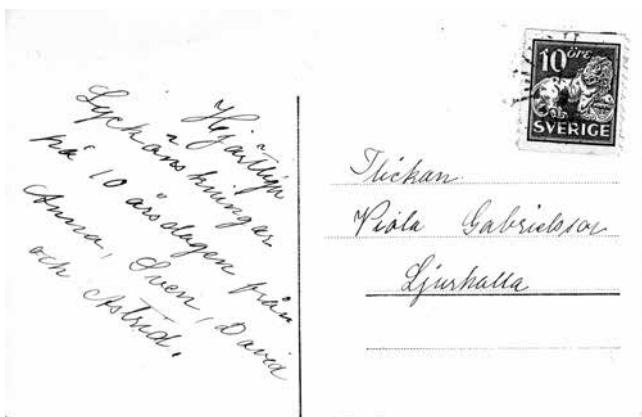 Hjärtliga
Lyckönskningar
på 10 årsdagen från
Anna, Sven, David
och Astrid.
10 öre
SVERIGE
Flickan
Viola Gabrielsson
Ljurhalla